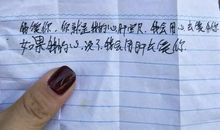 我爱你，你就是我的心肝宝贝，我会用心去爱你
如果我的心没了我会用肝去爱你